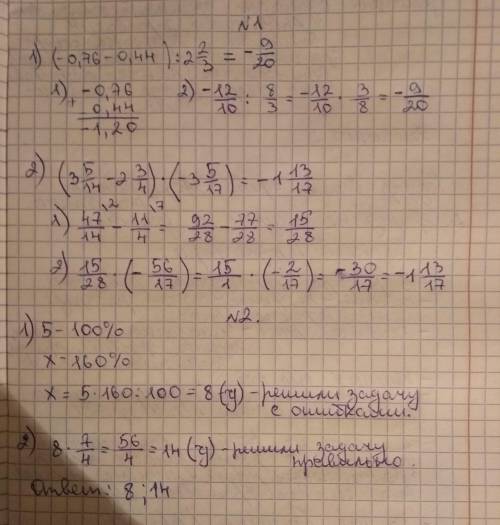 №1
1) (-0,76-0,44):2 2/3 = -9/20
1) -0,76
+ 0,44
-1,20
2) -12/10 : 8/3 = -12/10 · 3/8 = -9/20
2) (3 5/14 - 2 3/4) · (-3 5/17) = -1 13/17
1) 47/14 \2 - 11/4 \7 = 92/28 - 77/28 = 15/28
2) 15/28 · (-56/17) = 15/1 · (-2/17) = -30/17 = -1 13/17
№2.
1) 5 - 100%
x - 160%
x = 5·160:100 = 8 (у) - решили задачу
с ошибками.
2) 8 · 7/4 = 56/4 = 14 (у) - решили задачу
правильно.
Ответ: 8 ; 14